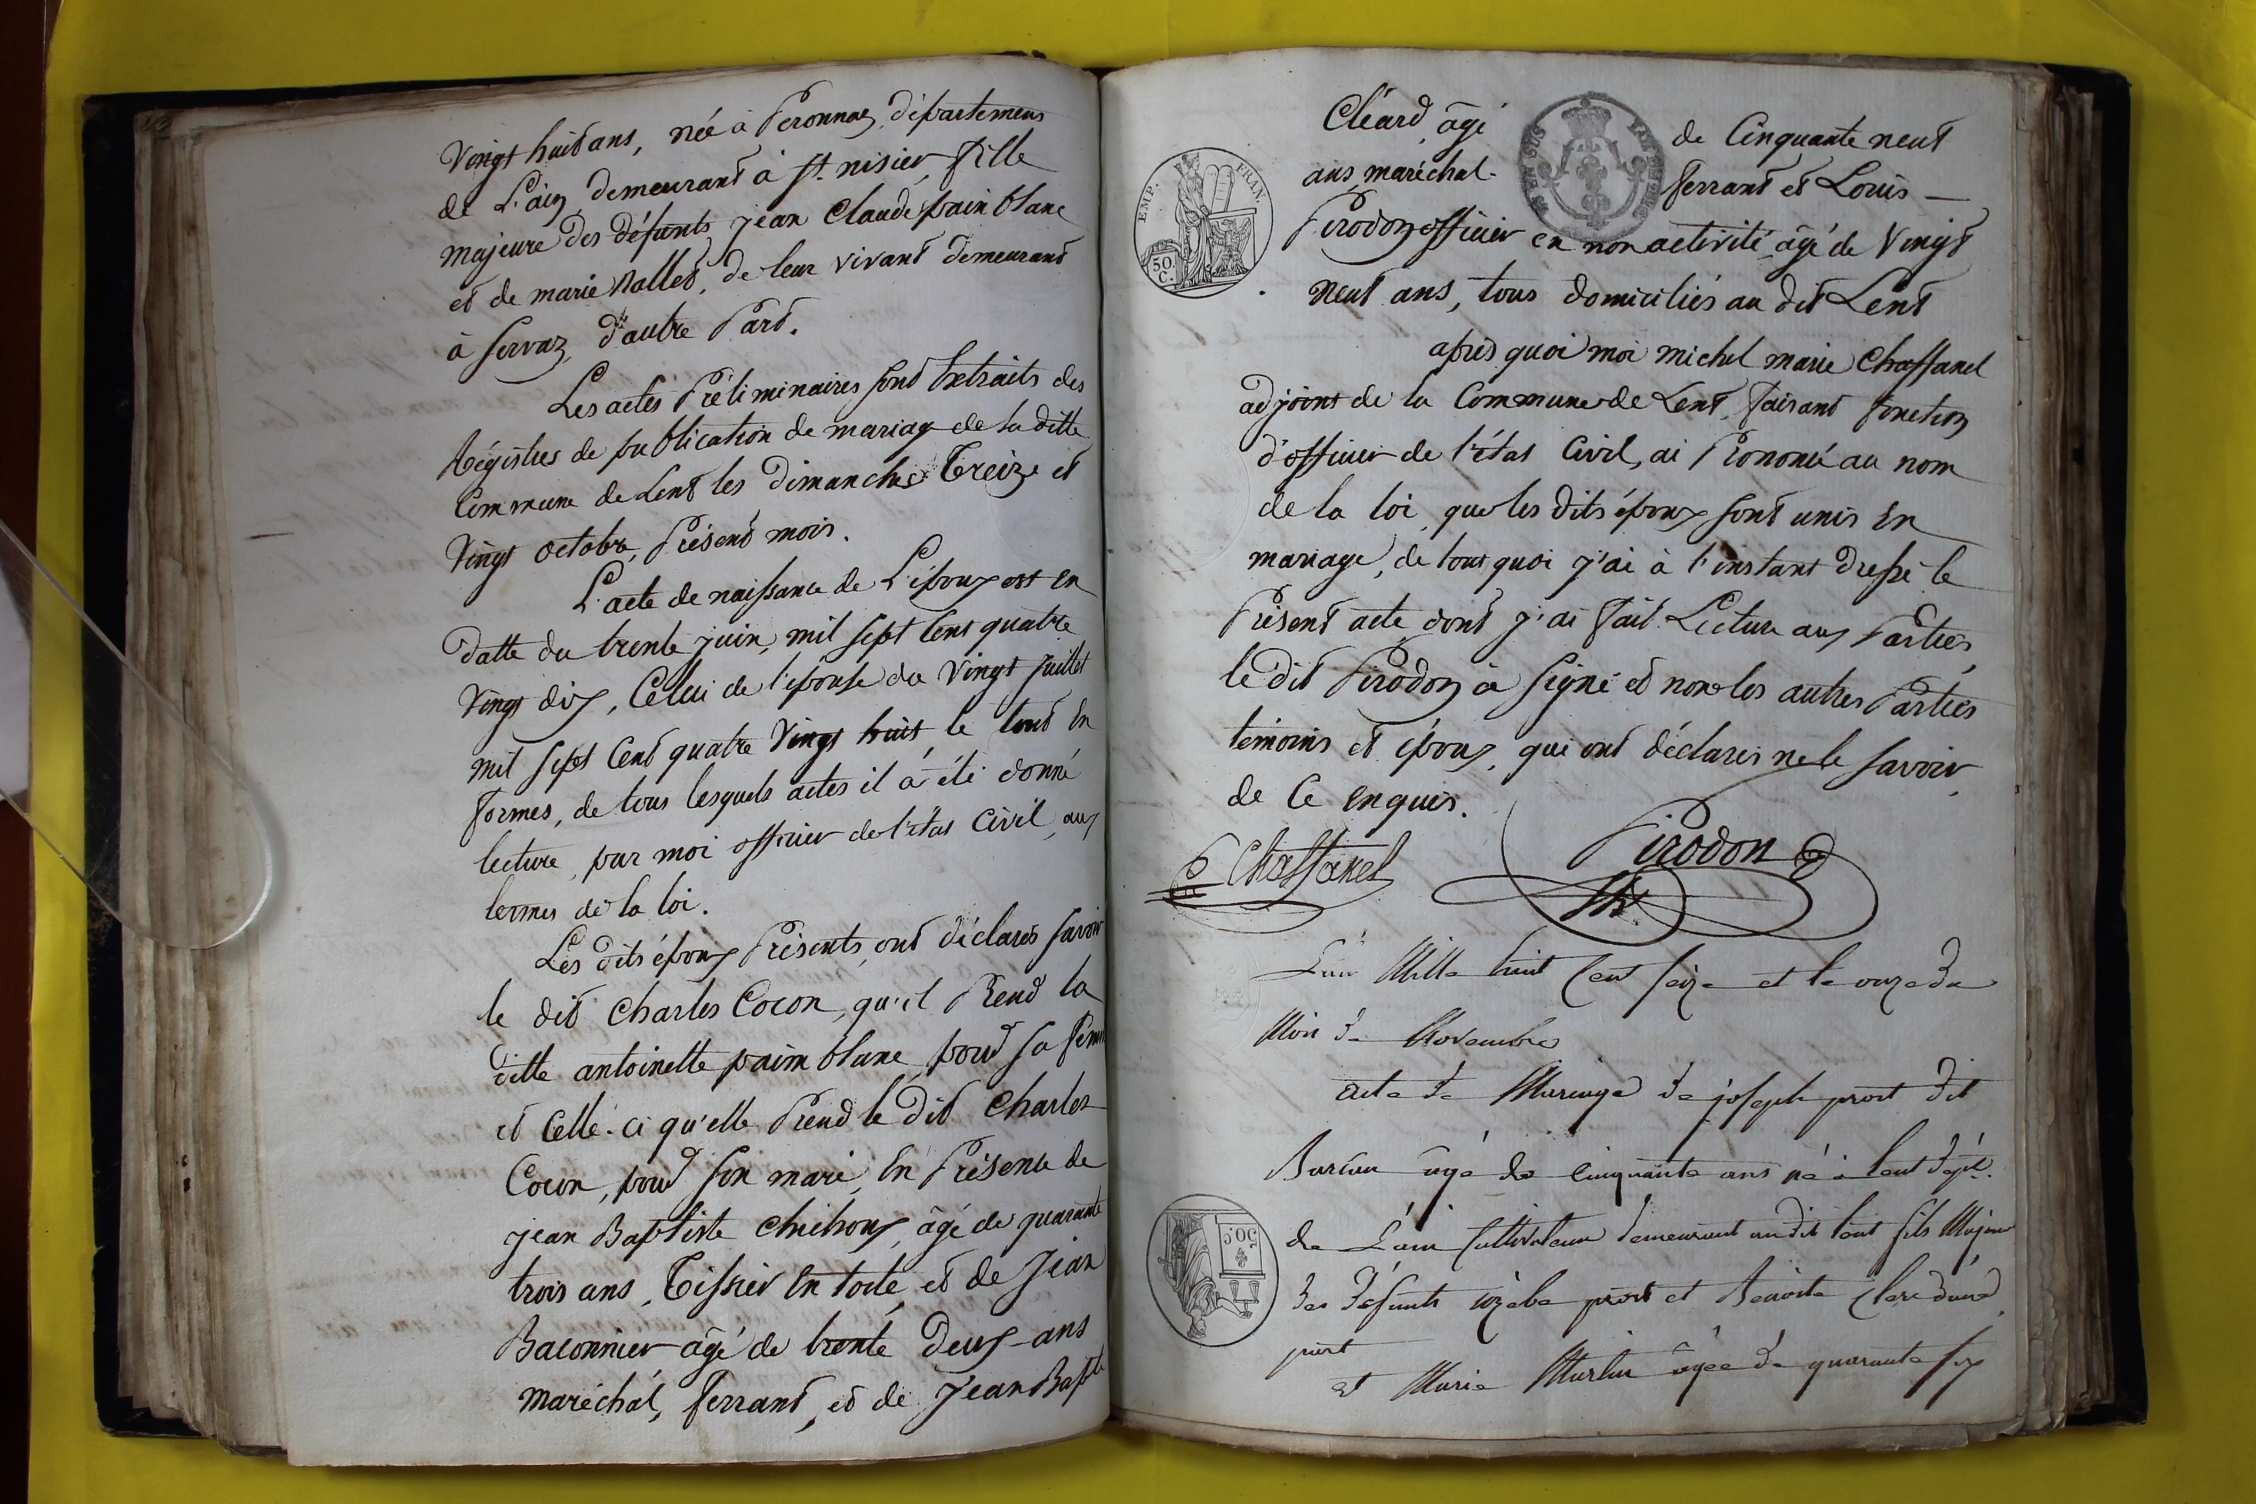 Vingt huit ans, née à Peronnaz, Département
de L'ain, demeurant à St. nisier, fille
majeure des défunts jean Claude pain blanc
et de marie Nallet, de leur vivant demeurant
à Servaz, d'autre Part.
Les actes Préliminaires sont Extraits des
Régistres de publication de mariage de la ditte
Commune de Lent les dimanches Treize et
Vingt octobre, Présent mois.
L'acte de naissance de L'époux est en
datte du trente juin, mil sept Cent quatre
Vingt dix, Celui de l'épouse du Vingt juillet
mil sept Cent quatre Vingt huit, le tout En
formes, de tous lesquels actes il à été donné
lecture, par moi officier de l'état Civil, aux
termes de la loi.
Les dits époux Présents, ont déclarés savoir
le dit Charles Cocon, qu'il Prend la
ditte antoinette paim blanc, pour sa femme
et Celle-ci qu'elle Prend le dit Charles
Cocon, pour son mari, En Présence de
jean Baptiste, âgé de quarante
trois ans, Tissier En toile, et de Jean
Baconnier âgé de trente Deux ans
maréchal, ferrant, et de Jean Bapte
Cléard, âgé de Cinquante neuf
ans, maréchal- ferrant et Louis
Pirodon officier en non activité, âgé de Vingt
neuf ans, tous domiciliés au dit Lent
après quoi moi michel marie Chaffanel
adjoint de la Commune de Lent, faisant fonction
d'officier de l'état Civil, ai Prononcé au nom
de la loi, que les dits époux sont unis En
mariage, de tout quoi j'ai à l'instant dressé le
Présent acte dont j'ai fait Lecture aux Parties,
le dit Pirodon à signé et non les autres Parties
témoins et époux, qui ont déclarés ne le savoir
de Ce Enquis.
Chaffanel
Pirodon
L'an Mille huit Cent seize et le onze du
Mois de Novembre
acte de Mariage de joseph prost dit
âgé de Cinquante ans né à Lent dépt.
de L'ain Cultivateur demeurant audit lent fils Majeur
des défunts prost et Benoite Clerc d'une
part
et Marie âgée de quarante six
EMP. FRAN.
50 C.
50C